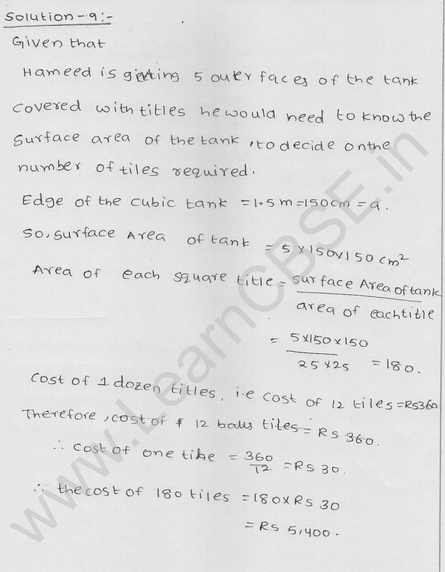 Solution-9:-
Given that
Hameed is giting 5 outer faces of the tank
covered with titles he would need to know the
surface area of the tank, to decide on the
number of tiles required.
Edge of the cubic tank = 1.5 m = 150 cm = a.
So, surface Area of tank = 5 x 150 x 150 cm²
Area of each square title = surface Area of tank
area of each title
= 5 x 150 x 150
25 x 25 = 180.
Cost of 1 dozen titles, i.e cost of 12 tiles = Rs 360
Therefore, cost of 12 balls tiles = Rs 360.
∴ cost of one tile = 360
12 = Rs 30.
∴ the cost of 180 tiles = 180 x Rs 30
= Rs 5,400.
www.LearnCBSE.in